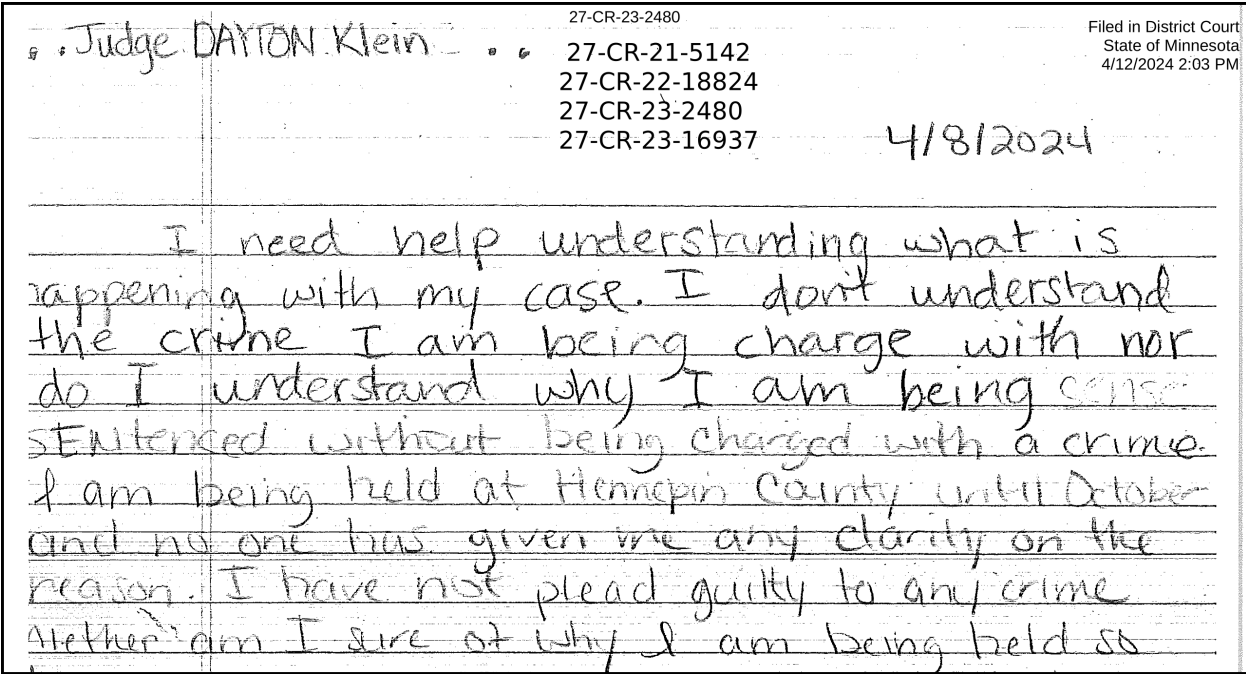 27-CR-23-2480
Filed in District Court
State of Minnesota
4/12/2024 2:03 PM
Judge DAYTON Klein
27-CR-21-5142
27-CR-22-18824
27-CR-23-2480
27-CR-23-16937
4/8/2024
I need help understanding what is
happening with my case. I don't understand
the crime I am being charge with nor
do I understand why I am being sense
SENtenced without being charged with a crime.
I am being held at Hennepin County until October
and no one has given me any clarity on the
reason. I have not plead guilty to any crime
Niether am I sure of why I am being held so